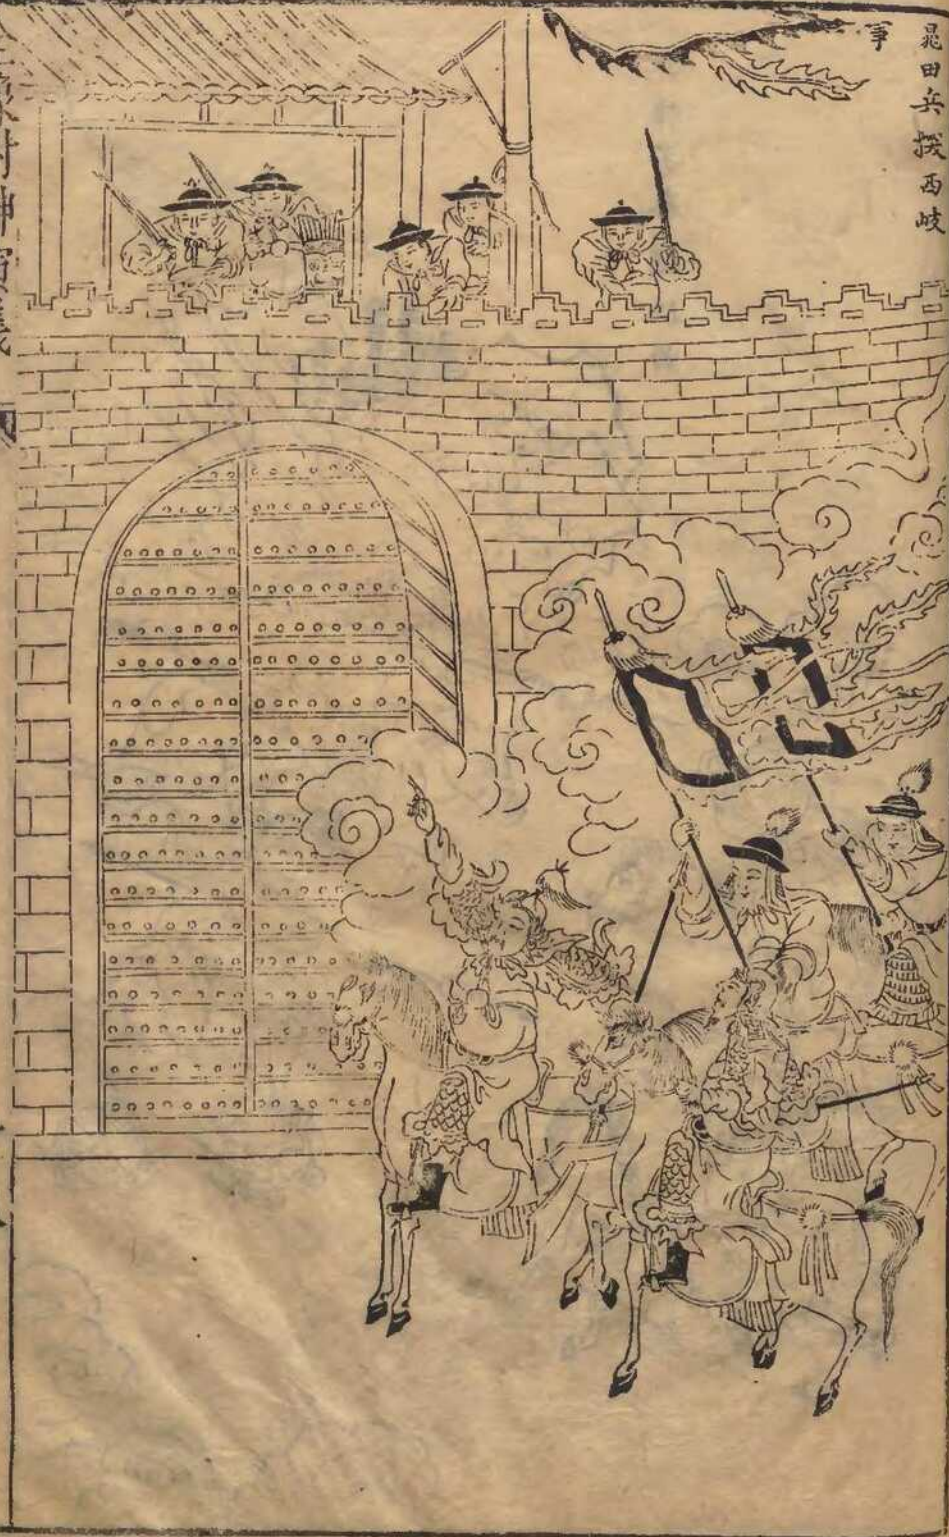 晁田兵探西岐
事
封神演義